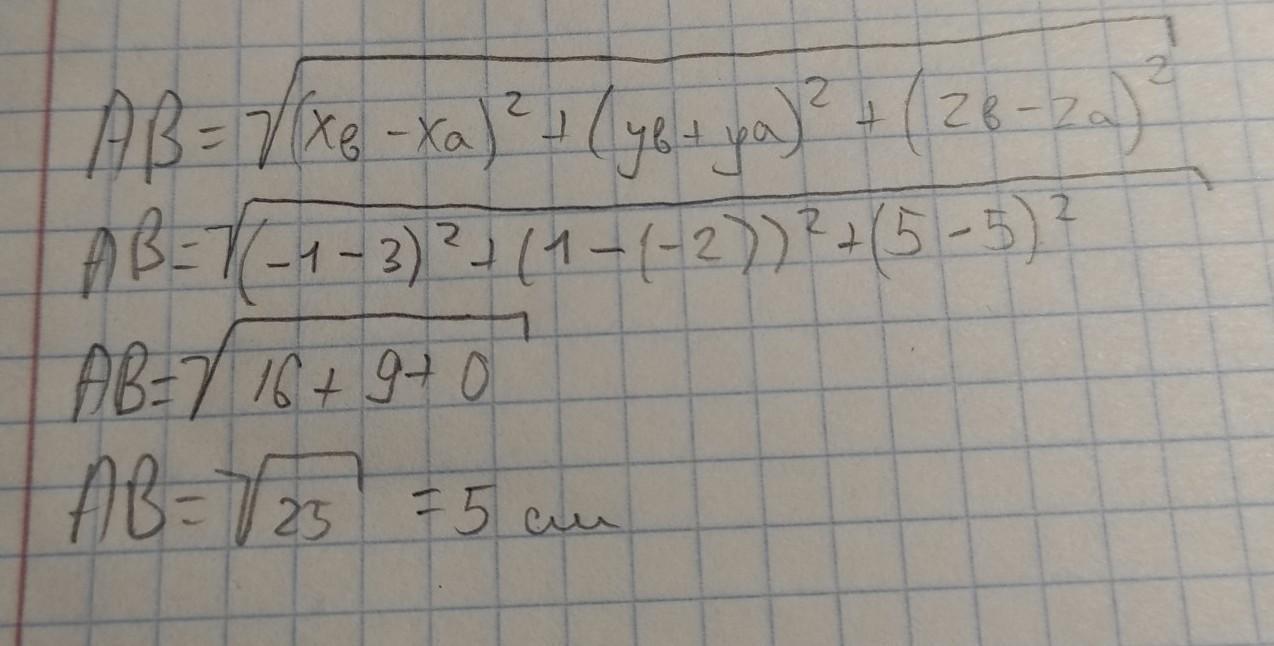 AB = √(xв - xa)² + (yв + ya)² + (zв - za)²
AB = √(-1 - 3)² + (1 - (-2))² + (5 - 5)²
AB = √16 + 9 + 0
AB = √25 = 5 см